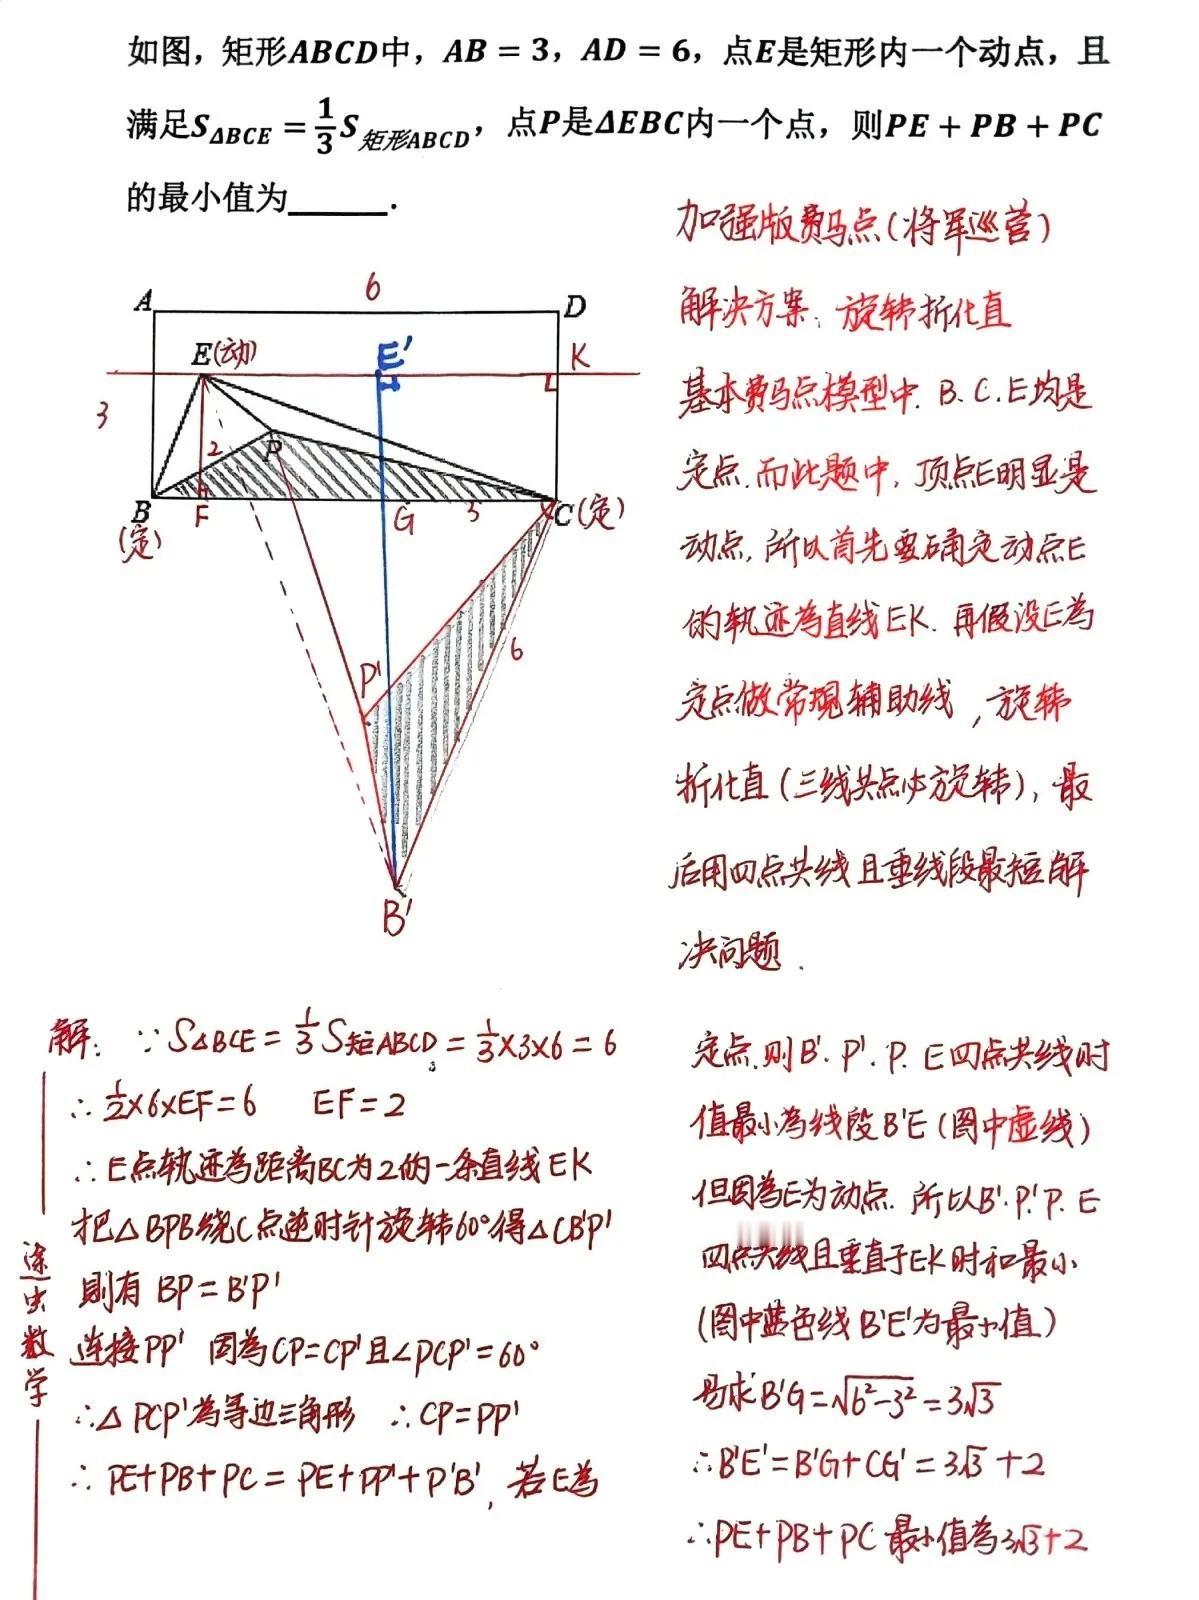 如图，矩形ABCD中，AB = 3，AD = 6，点E是矩形内一个动点，且
满足S△BCE = 1/3 S矩形ABCD，点P是ΔEBC内一个点，则PE + PB + PC
的最小值为______.
加强版费马点(将军巡营)
解决方案：旋转折化直
基本费马点模型中. B. C. E均是
定点. 而此题中, 顶点E明显是
动点, 所以首先要确定动点E
的轨迹为直线EK. 再假设E为
定点做常规辅助线, 旋转
折化直(三线共点必旋转), 最
后用四点共线且垂线段最短解
决问题.
6
A
D
E(动)
E'
K
3
2
P
B
F
G
3
C(定)
(定)
P'
6
B'
解: ∵S△BCE = 1/3 S矩ABCD = 1/3×3×6 = 6
∴ 1/2×6×EF=6 EF=2
∴E点轨迹为距离BC为2的一条直线EK
把△BPB绕C点逆时针旋转60°得△CB'P'
则有 BP=B'P'
连接PP' 因為CP=CP'且∠PCP'=60°
∴△PCP'為等边三角形 ∴CP=PP'
∴PE+PB+PC = PE+PP'+P'B', 若E為
定点, 则B'. P'. P. E四点共线时
值最小為线段B'E(图中虚线)
但因為E为动点. 所以B'. P'. P. E
四点共线且垂直于EK时和最小
(图中蓝色线B'E'为最小值)
易求B'G=√6²-3²=3√3
∴B'E'=B'G+CG'=3√3+2
∴PE+PB+PC最小值為3√3+2
涂虫数学